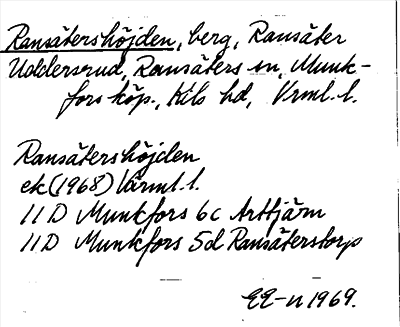 Ransätershöjden, berg, Ransäter
Uddersrud, Ransäters sn, Munk-
fors köp., Kils hd, Vrml. l.
Ransätershöjden
ek (1968) Värml. l.
11 D Munkfors 6c Arttjärn
11D Munkfors 5d Ransäterstorp
EE-n 1969.